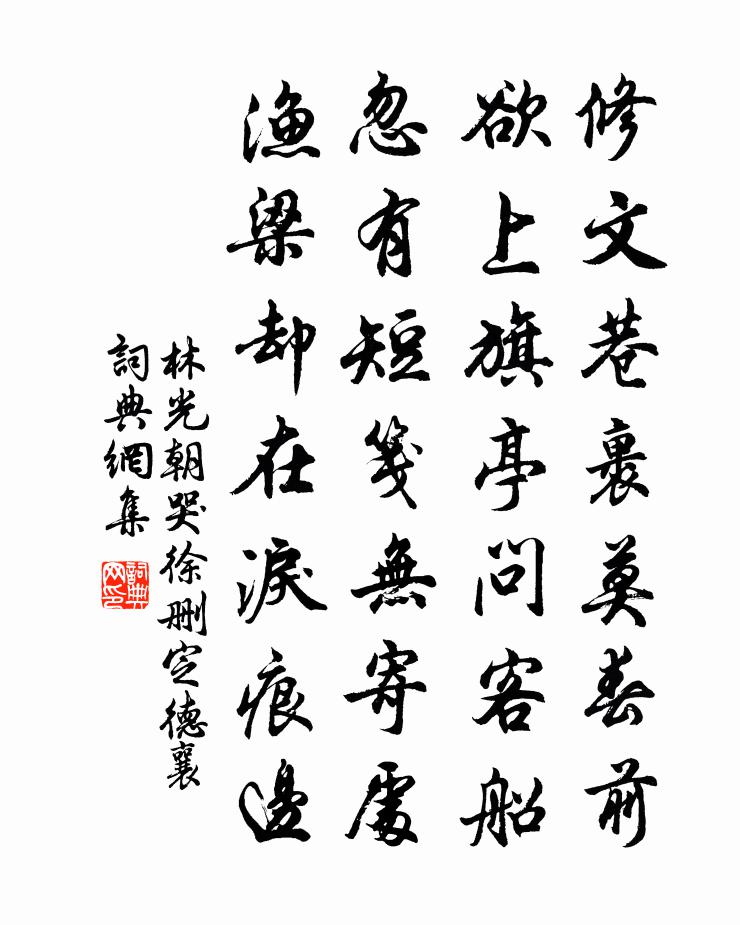 修文巷裏莫春前
欲上旗亭問客船
忽有短箋無寄處
漁梁却在淚痕邊
林光朝哭徐删定德襄
詞典網集
詞典網印